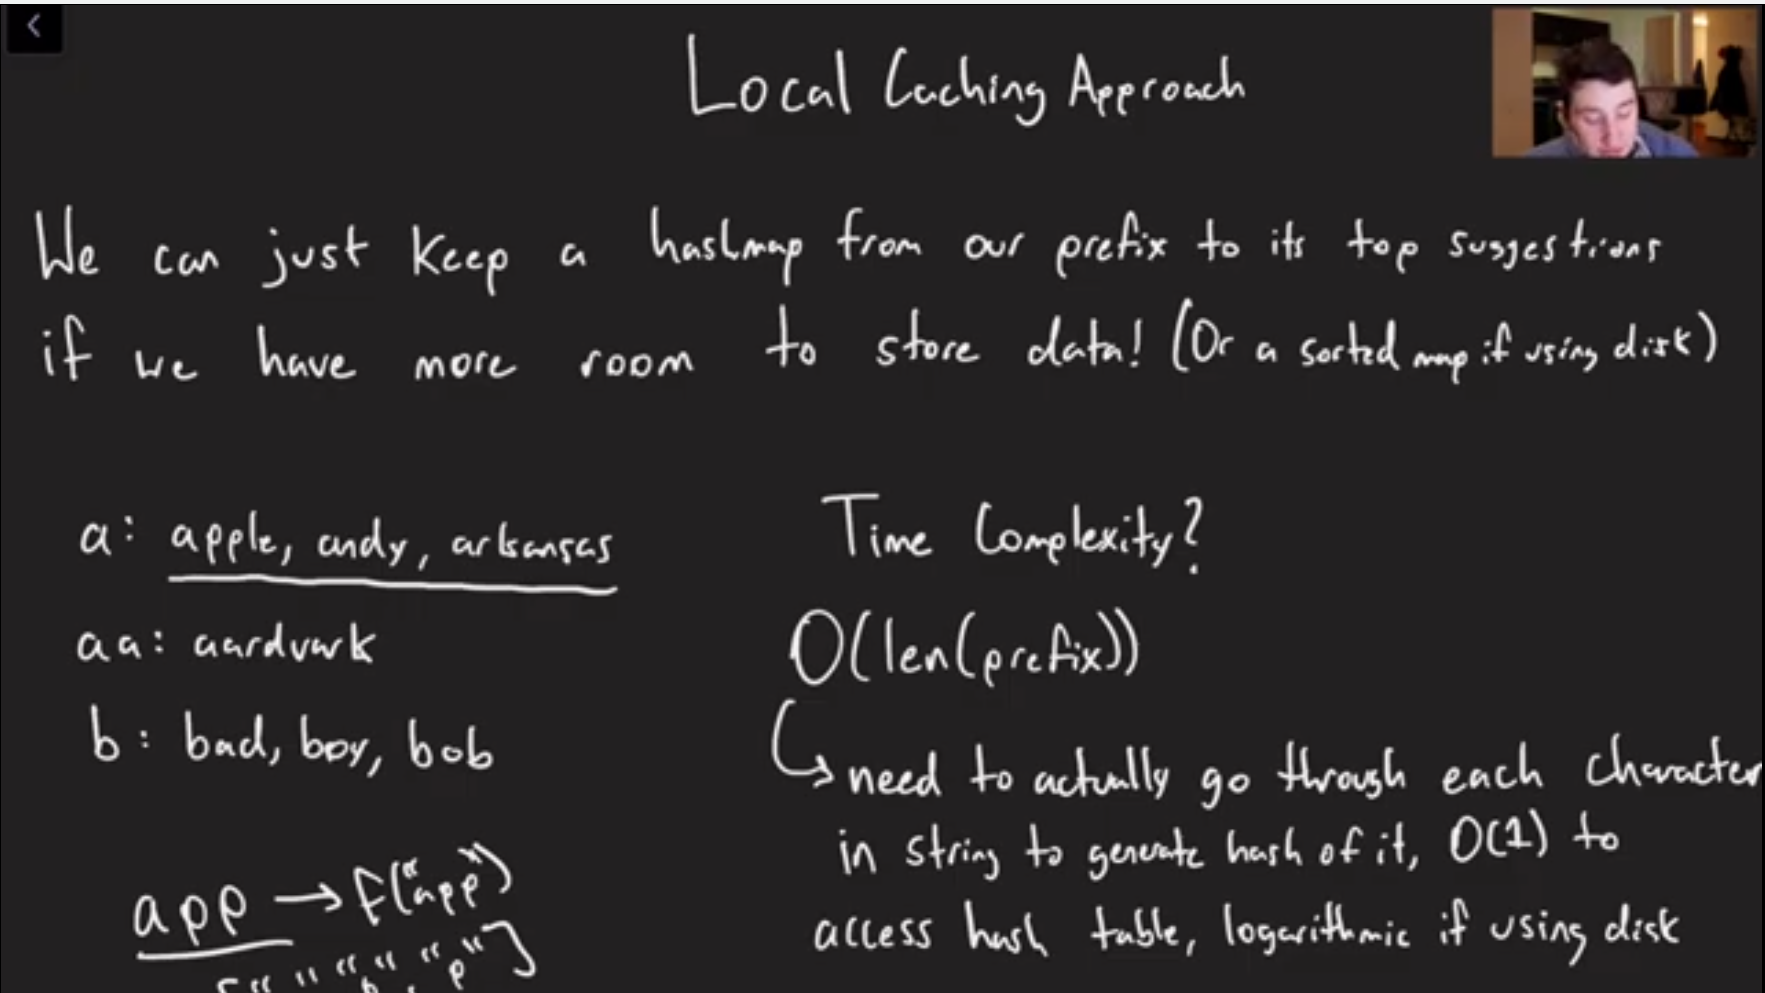 Local Caching Approach
We can just keep a hashmap from our prefix to its top suggestions
if we have more room to store data! (Or a sorted map if using disk)
a: apple, andy, arkansas
aa: aardvark
b: bad, boy, bob
app → f("app")
Time Complexity?
O(len(prefix))
↳ need to actually go through each character
in string to generate hash of it, O(1) to
access hash table, logarithmic if using disk